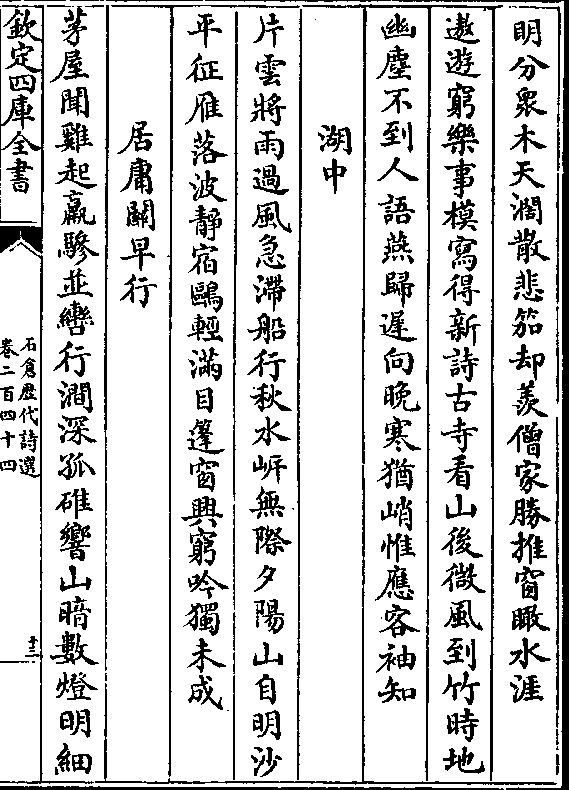 明分衆木天濶散悲笳却羡僧家勝推窗瞰水涯
遨遊窮樂事模寫得新詩古寺看山後微風到竹時地
幽塵不到人語燕歸遲向晚寒猶峭惟應客袖知
湖中
片雲將雨過風急滯船行秋水㟁無際夕陽山自明沙
平征雁落波静宿鷗輕滿目篷窗興窮吟獨未成
居庸關早行
茅屋聞雞起羸驂並轡行澗深孤碓響山暗數燈明細
欽定四庫全書
石倉歴代詩選
卷二百四十四
十三